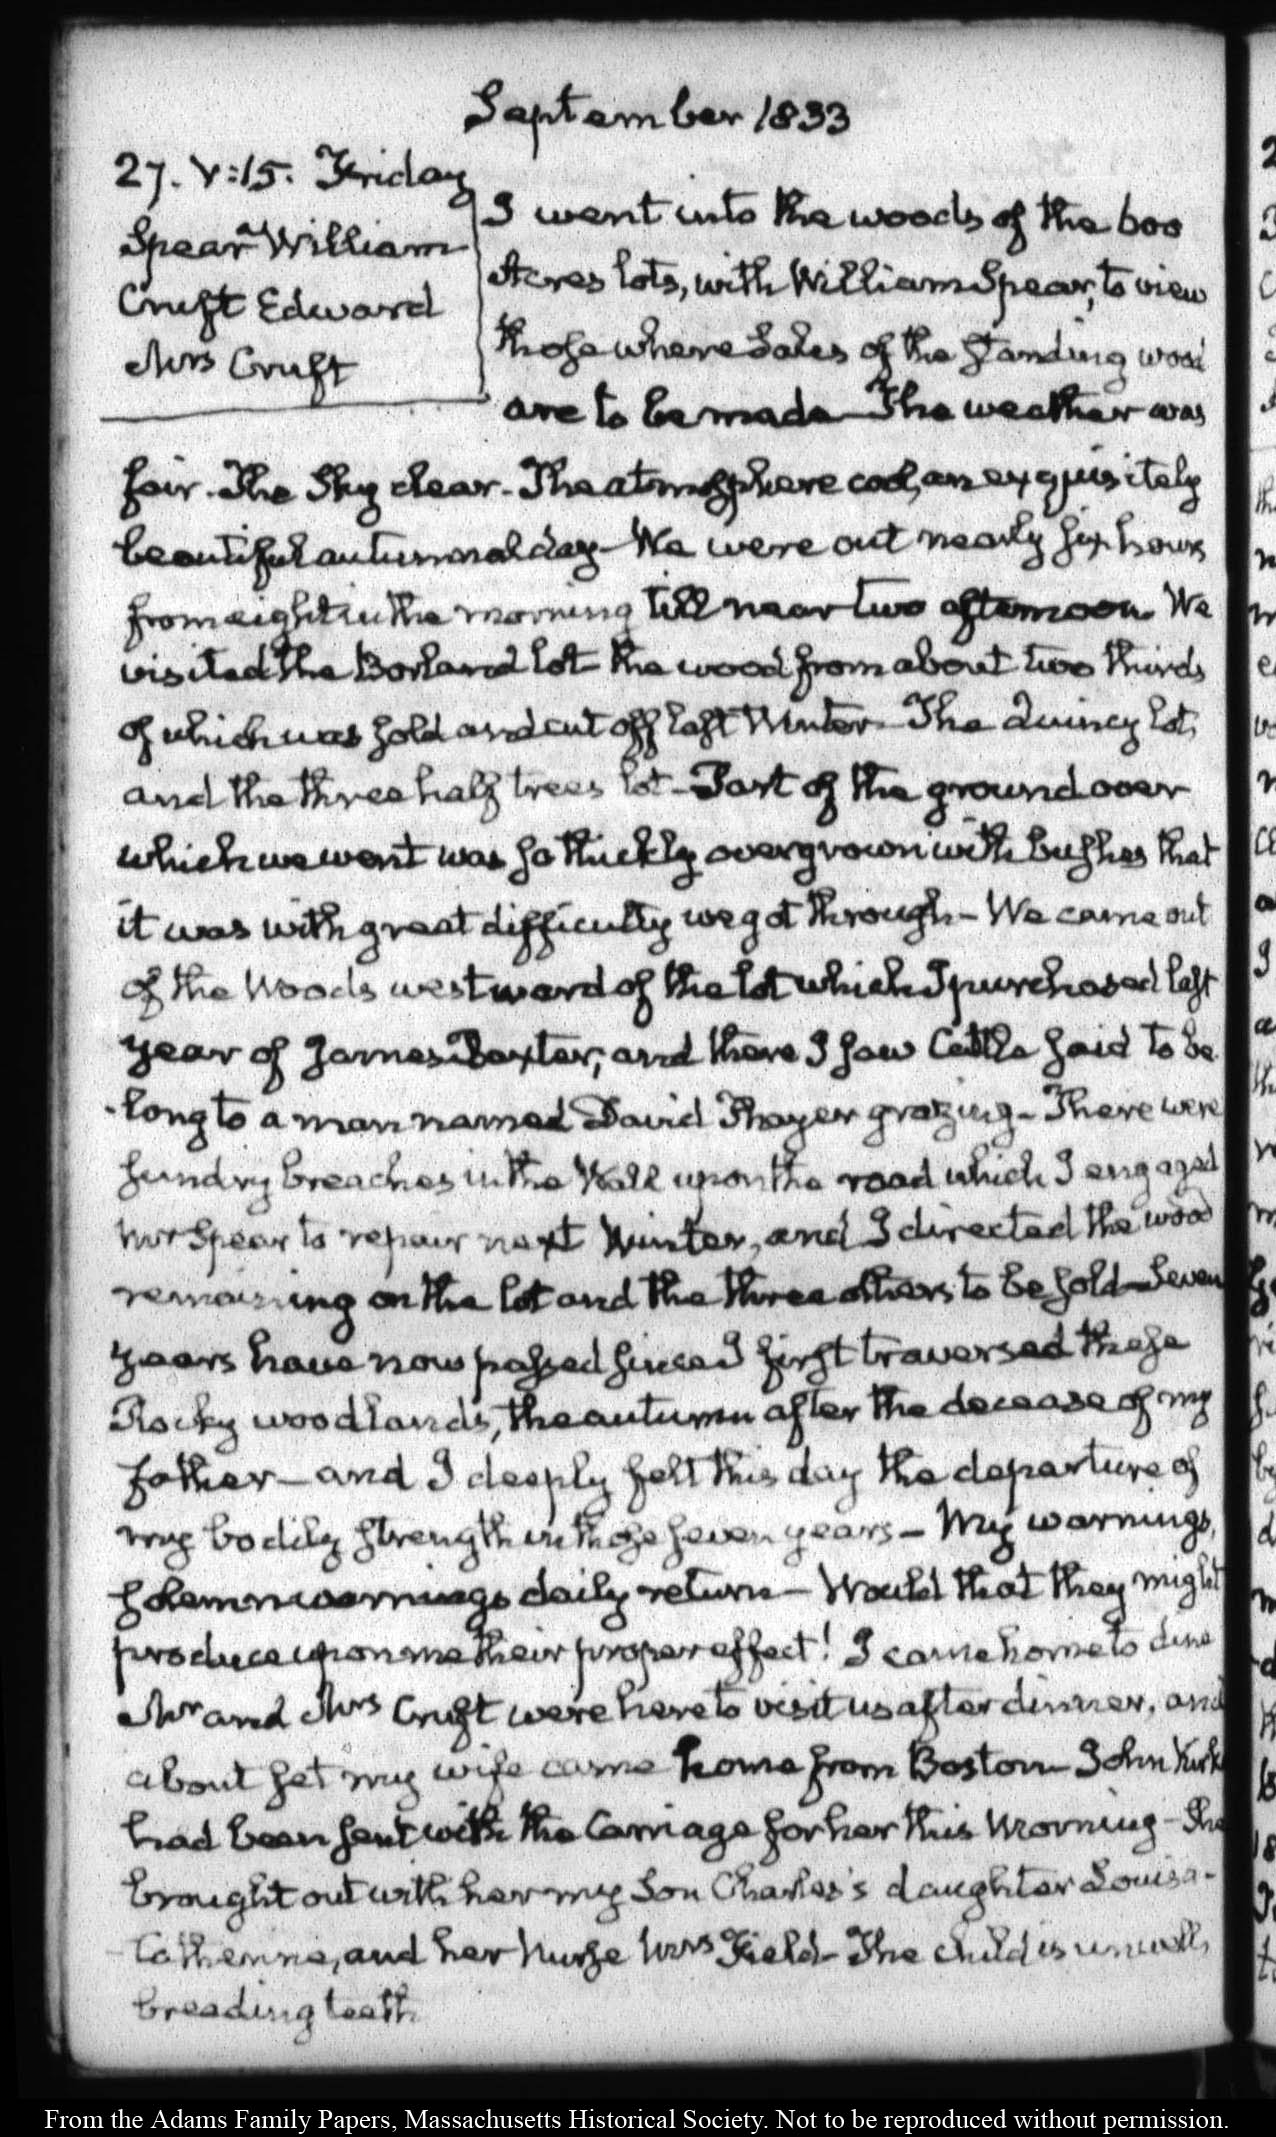 September 1833
27. V:15. Friday
Spear William
Cruft Edward
Mrs Cruft
I went into the woods of the 600
Acres lots, with William Spear, to view
those where Sales of the standing wood
are to be made — The weather was
fair. The Sky clear. The atmosphere cool, an exquisitely
beautiful autumnal day — We were out nearly six hours
from eight in the morning till near two afternoon. We
visited the Borland lot the wood from about two thirds
of which was sold and cut off last Winter. The Quincy lot,
and the three half trees lot — Part of the ground over
which we went was so thickly overgrown with bushes that
it was with great difficulty we got through — We came out
of the Woods westward of the lot which I purchased last
year of James Baxter, and there I saw Cattle said to be-
-long to a man named David Thayer grazing — There were
sundry breaches in the Wall upon the road which I engaged
Mr Spear to repair next Winter, and I directed the wood
remaining on the lot and the three others to be sold — Seven
years have now passed since I first traversed these
Rocky woodlands, the autumn after the decease of my
father — and I deeply felt this day the departure of
my bodily strength in those seven years — My warnings,
solemn warnings daily return — Would that they might
produce upon me their proper effect! I came home to dine
Mr and Mrs Cruft were here to visit us after dinner, and
about set my wife came home from Boston — John Kirk
had been sent with the Carriage for her this Morning — She
brought out with her my Son Charles's daughter Louisa-
Catherine, and her Nurse Mrs Field — The child is unwell,
breeding teeth
From the Adams Family Papers, Massachusetts Historical Society. Not to be reproduced without permission.